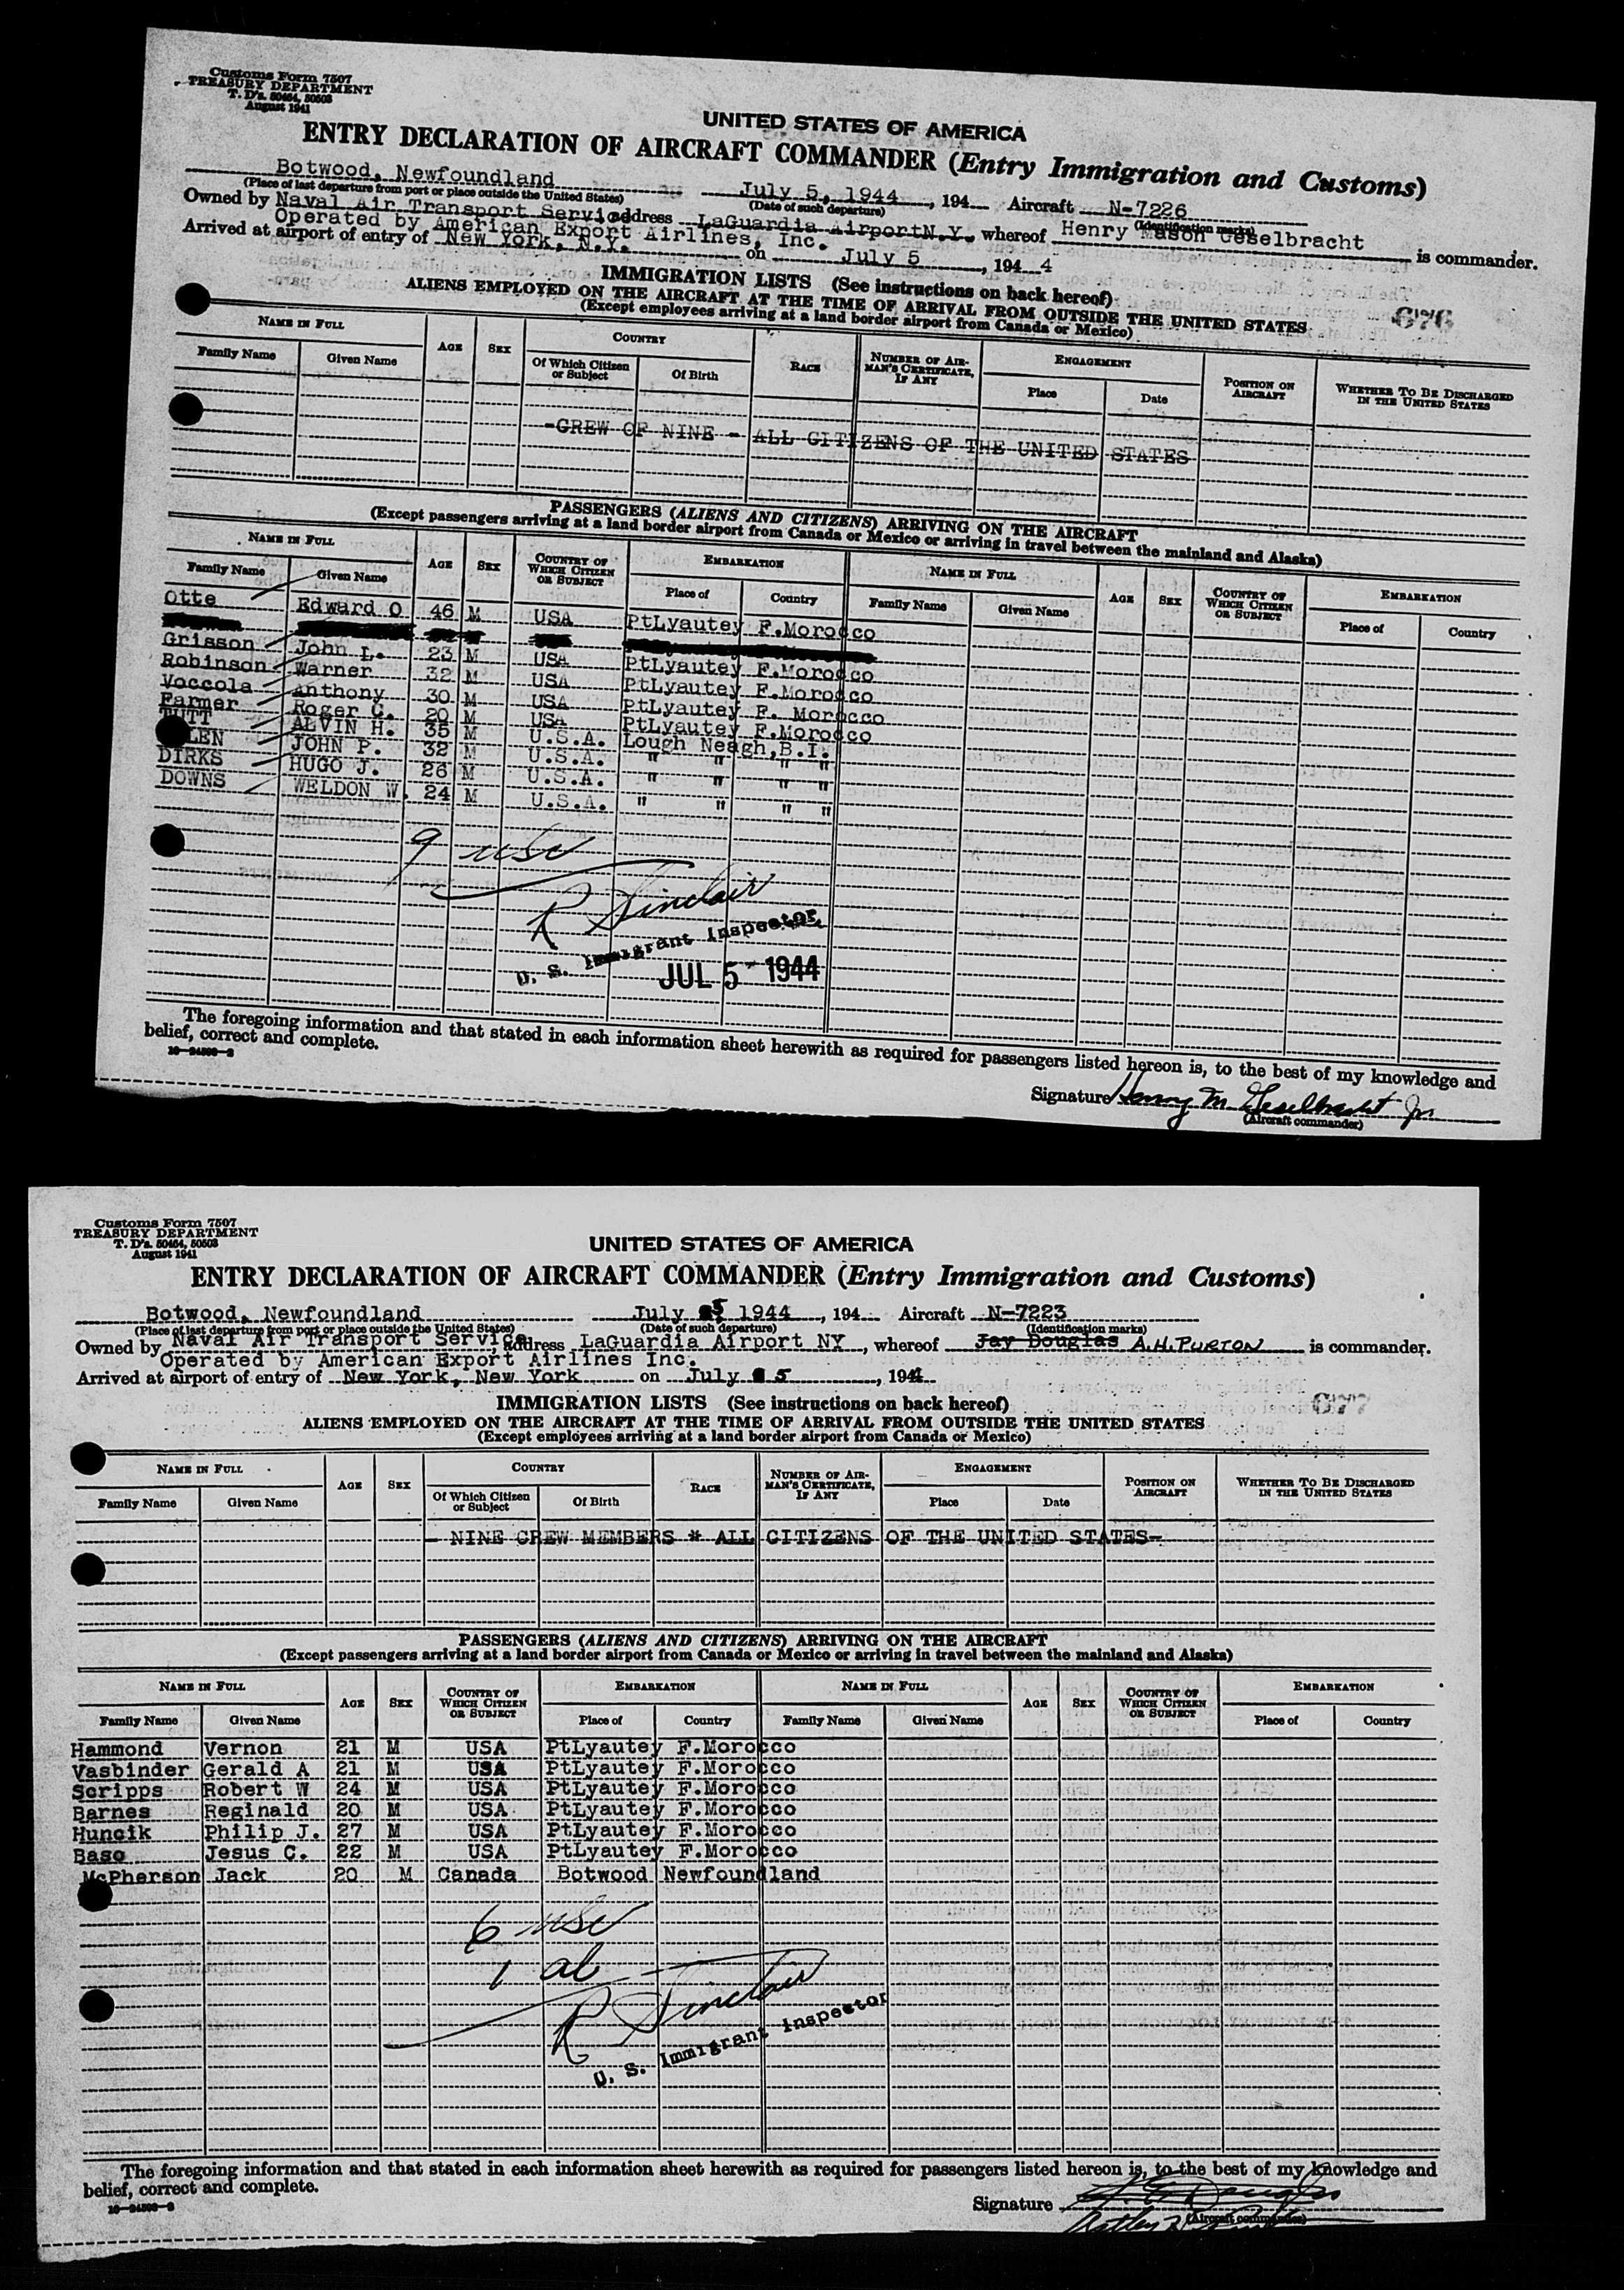 Customs Form 7507
TREASURY DEPARTMENT
T. D's. 50464, 50503
August 1941
UNITED STATES OF AMERICA
ENTRY DECLARATION OF AIRCRAFT COMMANDER (Entry Immigration and Customs)
Botwood, Newfoundland July 5, 1944, 194 Aircraft N-7226
(Place of last departure from port or place outside the United States) (Date of such departure) (Identification marks)
Owned by Naval Air Transport Service address LaGuardia Airport N.Y. whereof Henry Mason Geselbracht is commander.
Operated by American Export Airlines, Inc.
Arrived at airport of entry of New York, N.Y. on July 5, 194 4
IMMIGRATION LISTS (See instructions on back hereof)
676
ALIENS EMPLOYED ON THE AIRCRAFT AT THE TIME OF ARRIVAL FROM OUTSIDE THE UNITED STATES
(Except employees arriving at a land border airport from Canada or Mexico)
NAME IN FULL AGE SEX COUNTRY RACE NUMBER OF AIRMAN'S CERTIFICATE, IF ANY ENGAGEMENT POSITION ON AIRCRAFT WHETHER TO BE DISCHARGED IN THE UNITED STATES
Family Name Given Name Of Which Citizen or Subject Of Birth Place Date
-CREW OF NINE - ALL CITIZENS OF THE UNITED STATES
PASSENGERS (ALIENS AND CITIZENS) ARRIVING ON THE AIRCRAFT
(Except passengers arriving at a land border airport from Canada or Mexico or arriving in travel between the mainland and Alaska)
NAME IN FULL AGE SEX COUNTRY OF WHICH CITIZEN OR SUBJECT EMBARKATION NAME IN FULL AGE SEX COUNTRY OF WHICH CITIZEN OR SUBJECT EMBARKATION
Family Name Given Name Place of Country Family Name Given Name Place of Country
Otte Edward O 46 M USA PtLyautey F.Morocco
Grisson John L. 23 M USA PtLyautey F.Morocco
Robinson Warner 32 M USA PtLyautey F.Morocco
Voccola Anthony 30 M USA PtLyautey F. Morocco
Farmer Roger C. 20 M USA PtLyautey F.Morocco
TUTT ALVIN H. 35 M U.S.A. Lough Neagh,B.I.
LEN JOHN P. 32 M U.S.A. " " " "
DIRKS HUGO J. 26 M U.S.A. " " " "
DOWNS WELDON W. 24 M U.S.A. " " " "
9 usc
R Sinclair
U. S. Immigrant Inspector
JUL 5 1944
The foregoing information and that stated in each information sheet herewith as required for passengers listed hereon is, to the best of my knowledge and
belief, correct and complete.
Signature Henry M. Geselbracht Jr
(Aircraft commander)
Customs Form 7507
TREASURY DEPARTMENT
T. D's. 50464, 50503
August 1941
UNITED STATES OF AMERICA
ENTRY DECLARATION OF AIRCRAFT COMMANDER (Entry Immigration and Customs)
Botwood, Newfoundland July 5, 1944, 194 Aircraft N-7223
(Place of last departure from port or place outside the United States) (Date of such departure) (Identification marks)
Owned by Naval Air Transport Service, address LaGuardia Airport NY, whereof Jay Douglas A.H. PURTON is commander.
Operated by American Export Airlines Inc.
Arrived at airport of entry of New York, New York on July 5, 1944
IMMIGRATION LISTS (See instructions on back hereof)
677
ALIENS EMPLOYED ON THE AIRCRAFT AT THE TIME OF ARRIVAL FROM OUTSIDE THE UNITED STATES
(Except employees arriving at a land border airport from Canada or Mexico)
NAME IN FULL AGE SEX COUNTRY RACE NUMBER OF AIRMAN'S CERTIFICATE, IF ANY ENGAGEMENT POSITION ON AIRCRAFT WHETHER TO BE DISCHARGED IN THE UNITED STATES
Family Name Given Name Of Which Citizen or Subject Of Birth Place Date
- NINE CREW MEMBERS * ALL CITIZENS OF THE UNITED STATES-
PASSENGERS (ALIENS AND CITIZENS) ARRIVING ON THE AIRCRAFT
(Except passengers arriving at a land border airport from Canada or Mexico or arriving in travel between the mainland and Alaska)
NAME IN FULL AGE SEX COUNTRY OF WHICH CITIZEN OR SUBJECT EMBARKATION NAME IN FULL AGE SEX COUNTRY OF WHICH CITIZEN OR SUBJECT EMBARKATION
Family Name Given Name Place of Country Family Name Given Name Place of Country
Hammond Vernon 21 M USA PtLyautey F.Morocco
Vasbinder Gerald A 21 M USA PtLyautey F.Morocco
Scripps Robert W 24 M USA PtLyautey F.Morocco
Barnes Reginald 20 M USA PtLyautey F.Morocco
Huncik Philip J. 27 M USA PtLyautey F.Morocco
Baso Jesus C. 22 M USA PtLyautey F.Morocco
McPherson Jack 20 M Canada Botwood Newfoundland
6 usc
1 al
R Sinclair
U. S. Immigrant Inspector
The foregoing information and that stated in each information sheet herewith as required for passengers listed hereon is, to the best of my knowledge and
belief, correct and complete.
Signature
(Aircraft commander)